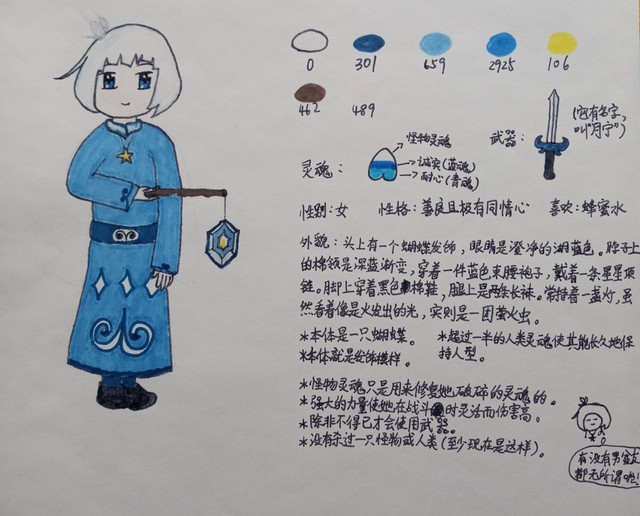 0 301 659 2925 106
462 489
灵魂：
怪物灵魂
诚实(蓝魂)
耐心(青魂)
武器：
(它有名字,
叫"月宁")
性别：女 性格：善良且极有同情心 喜欢：蜂蜜水
外貌：头上有一个蝴蝶发饰，眼睛是澄净的湖蓝色。脖子上
的棉领是深蓝渐变，穿着一件蓝色束腰袍子，戴着一条星星项
链。脚上穿着黑色棉鞋，腿上是两条长袜。常持着一盏灯，虽
然看着像是火发出的光，实则是一团萤火虫。
*本体是一只蝴蝶。
*本体就是发饰模样。
*超过一半的人类灵魂使其能长久地保
持人型。
*怪物灵魂只是用来修复她破碎的灵魂的。
*强大的力量使她在战斗时灵活而伤害高。
*除非不得已才会使用武器。
*没有杀过一只怪物或人类(至少现在是这样)。
有没有男女友
都无所谓啦!